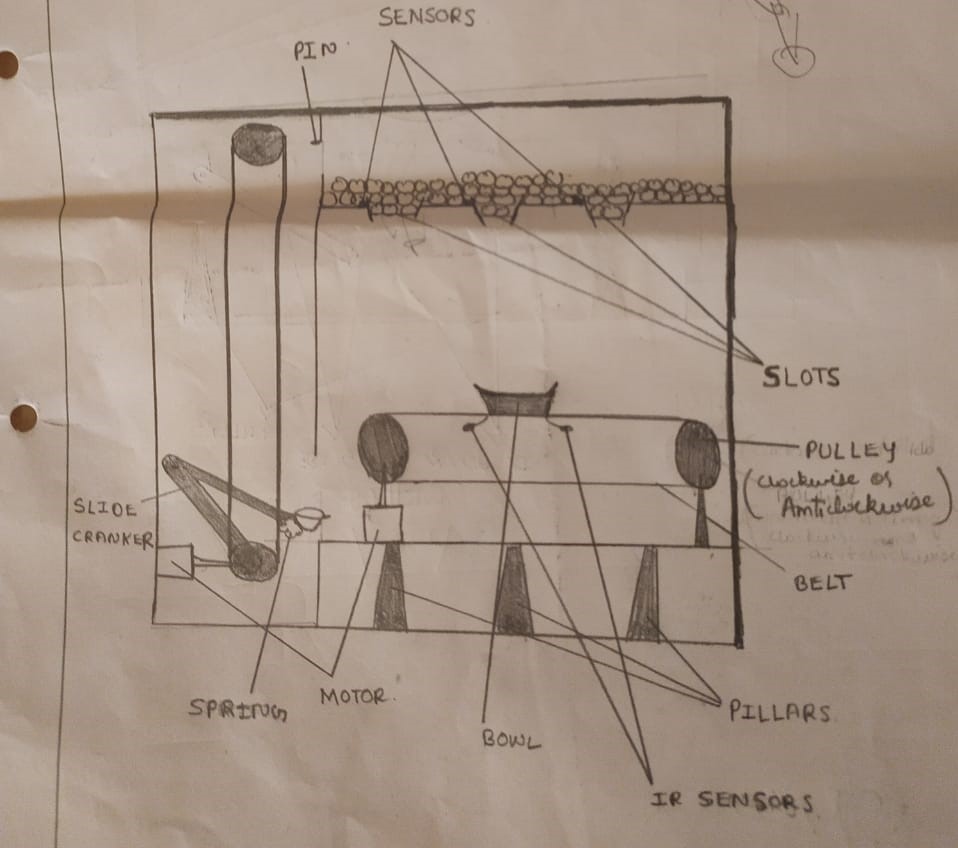 SENSORS
PIN
SLOTS
PULLEY
(clockwise or
Anticlockwise)
SLIDE
CRANKER
BELT
SPRING
MOTOR.
PILLARS
BOWL
IR SENSORS